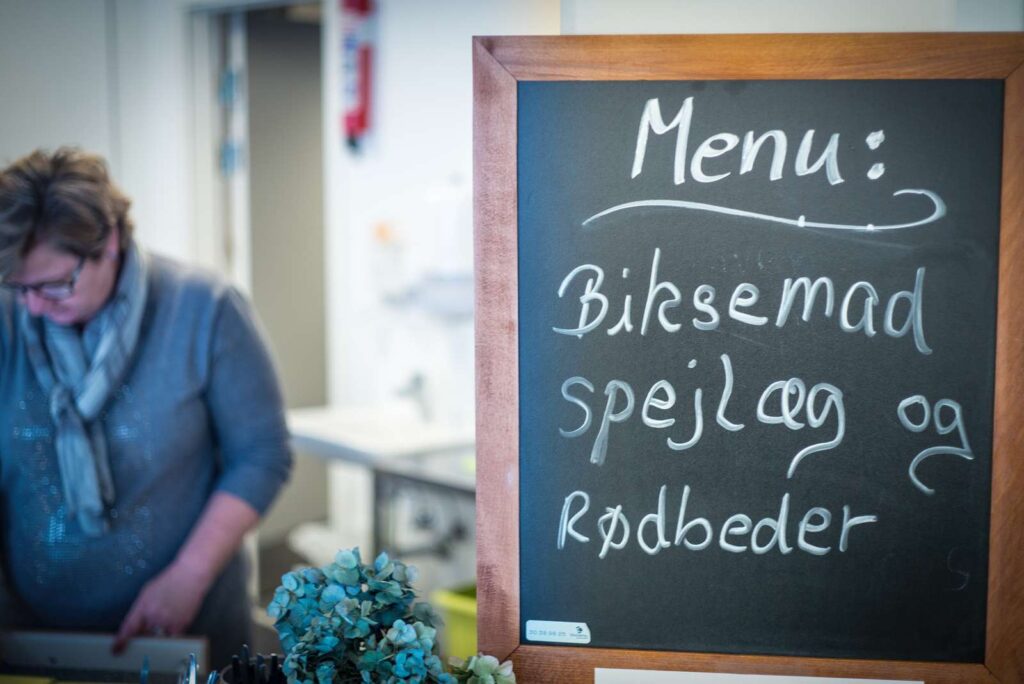 Menu:
Biksemad
spejlæg og
Rødbeder